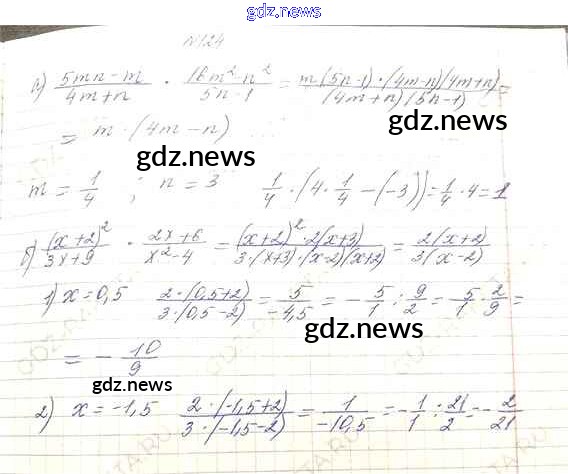 gdz.news
№124
а) (5mn − m)/(4m + n) · (16m² − n²)/(5n − 1) = (m(5n−1)·(4m−n)(4m+n))/((4m+n)(5n−1)) =
= m · (4m − n)
gdz.news
m = 1/4 ; n = 3 1/4 · (4 · 1/4 − (−3)) = 1/4 · 4 = 1
gdz.news
б) (x+2)²/(3x+9) · (2x+6)/(x²−4) = ((x+2)² · 2(x+3))/(3·(x+3)·(x−2)(x+2)) = 2(x+2)/(3(x−2))
1) x = 0,5 (2·(0,5+2))/(3·(0,5−2)) = 5/(−4,5) = − 5/1 : 9/2 = − 5/1 · 2/9 =
gdz.news
= − 10/9
gdz.news
2) x = −1,5 (2·(−1,5+2))/(3·(−1,5−2)) = 1/(−10,5) = − 1/1 : 21/2 = − 2/21